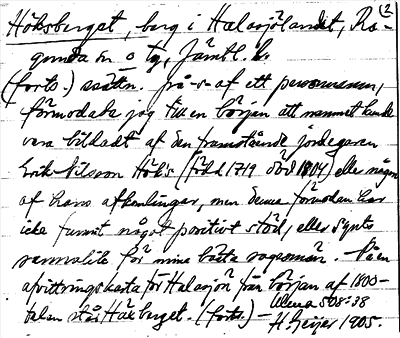 Höksberget, berg i Halasjölandet, Ra- (2
gunda sn o tg, Jämtl. l.
(forts.) sättn. från-s- af ett personnamn,
förmodade jag till en början att namnet kunde
vara bildadt af den framstående jordegaren
Erik Nilsson Hök's (född 1719 död 1804) eller någon
af hans afkomlingar, men denna förmodan har
icke funnit något positivt stöd, eller synts
sannolik för mina bästa sagesmän. - På en
afvittringskarta för Halasjön från början af 1800-
talen står Hökberget. (forts.) -
H. Geijer 1905.